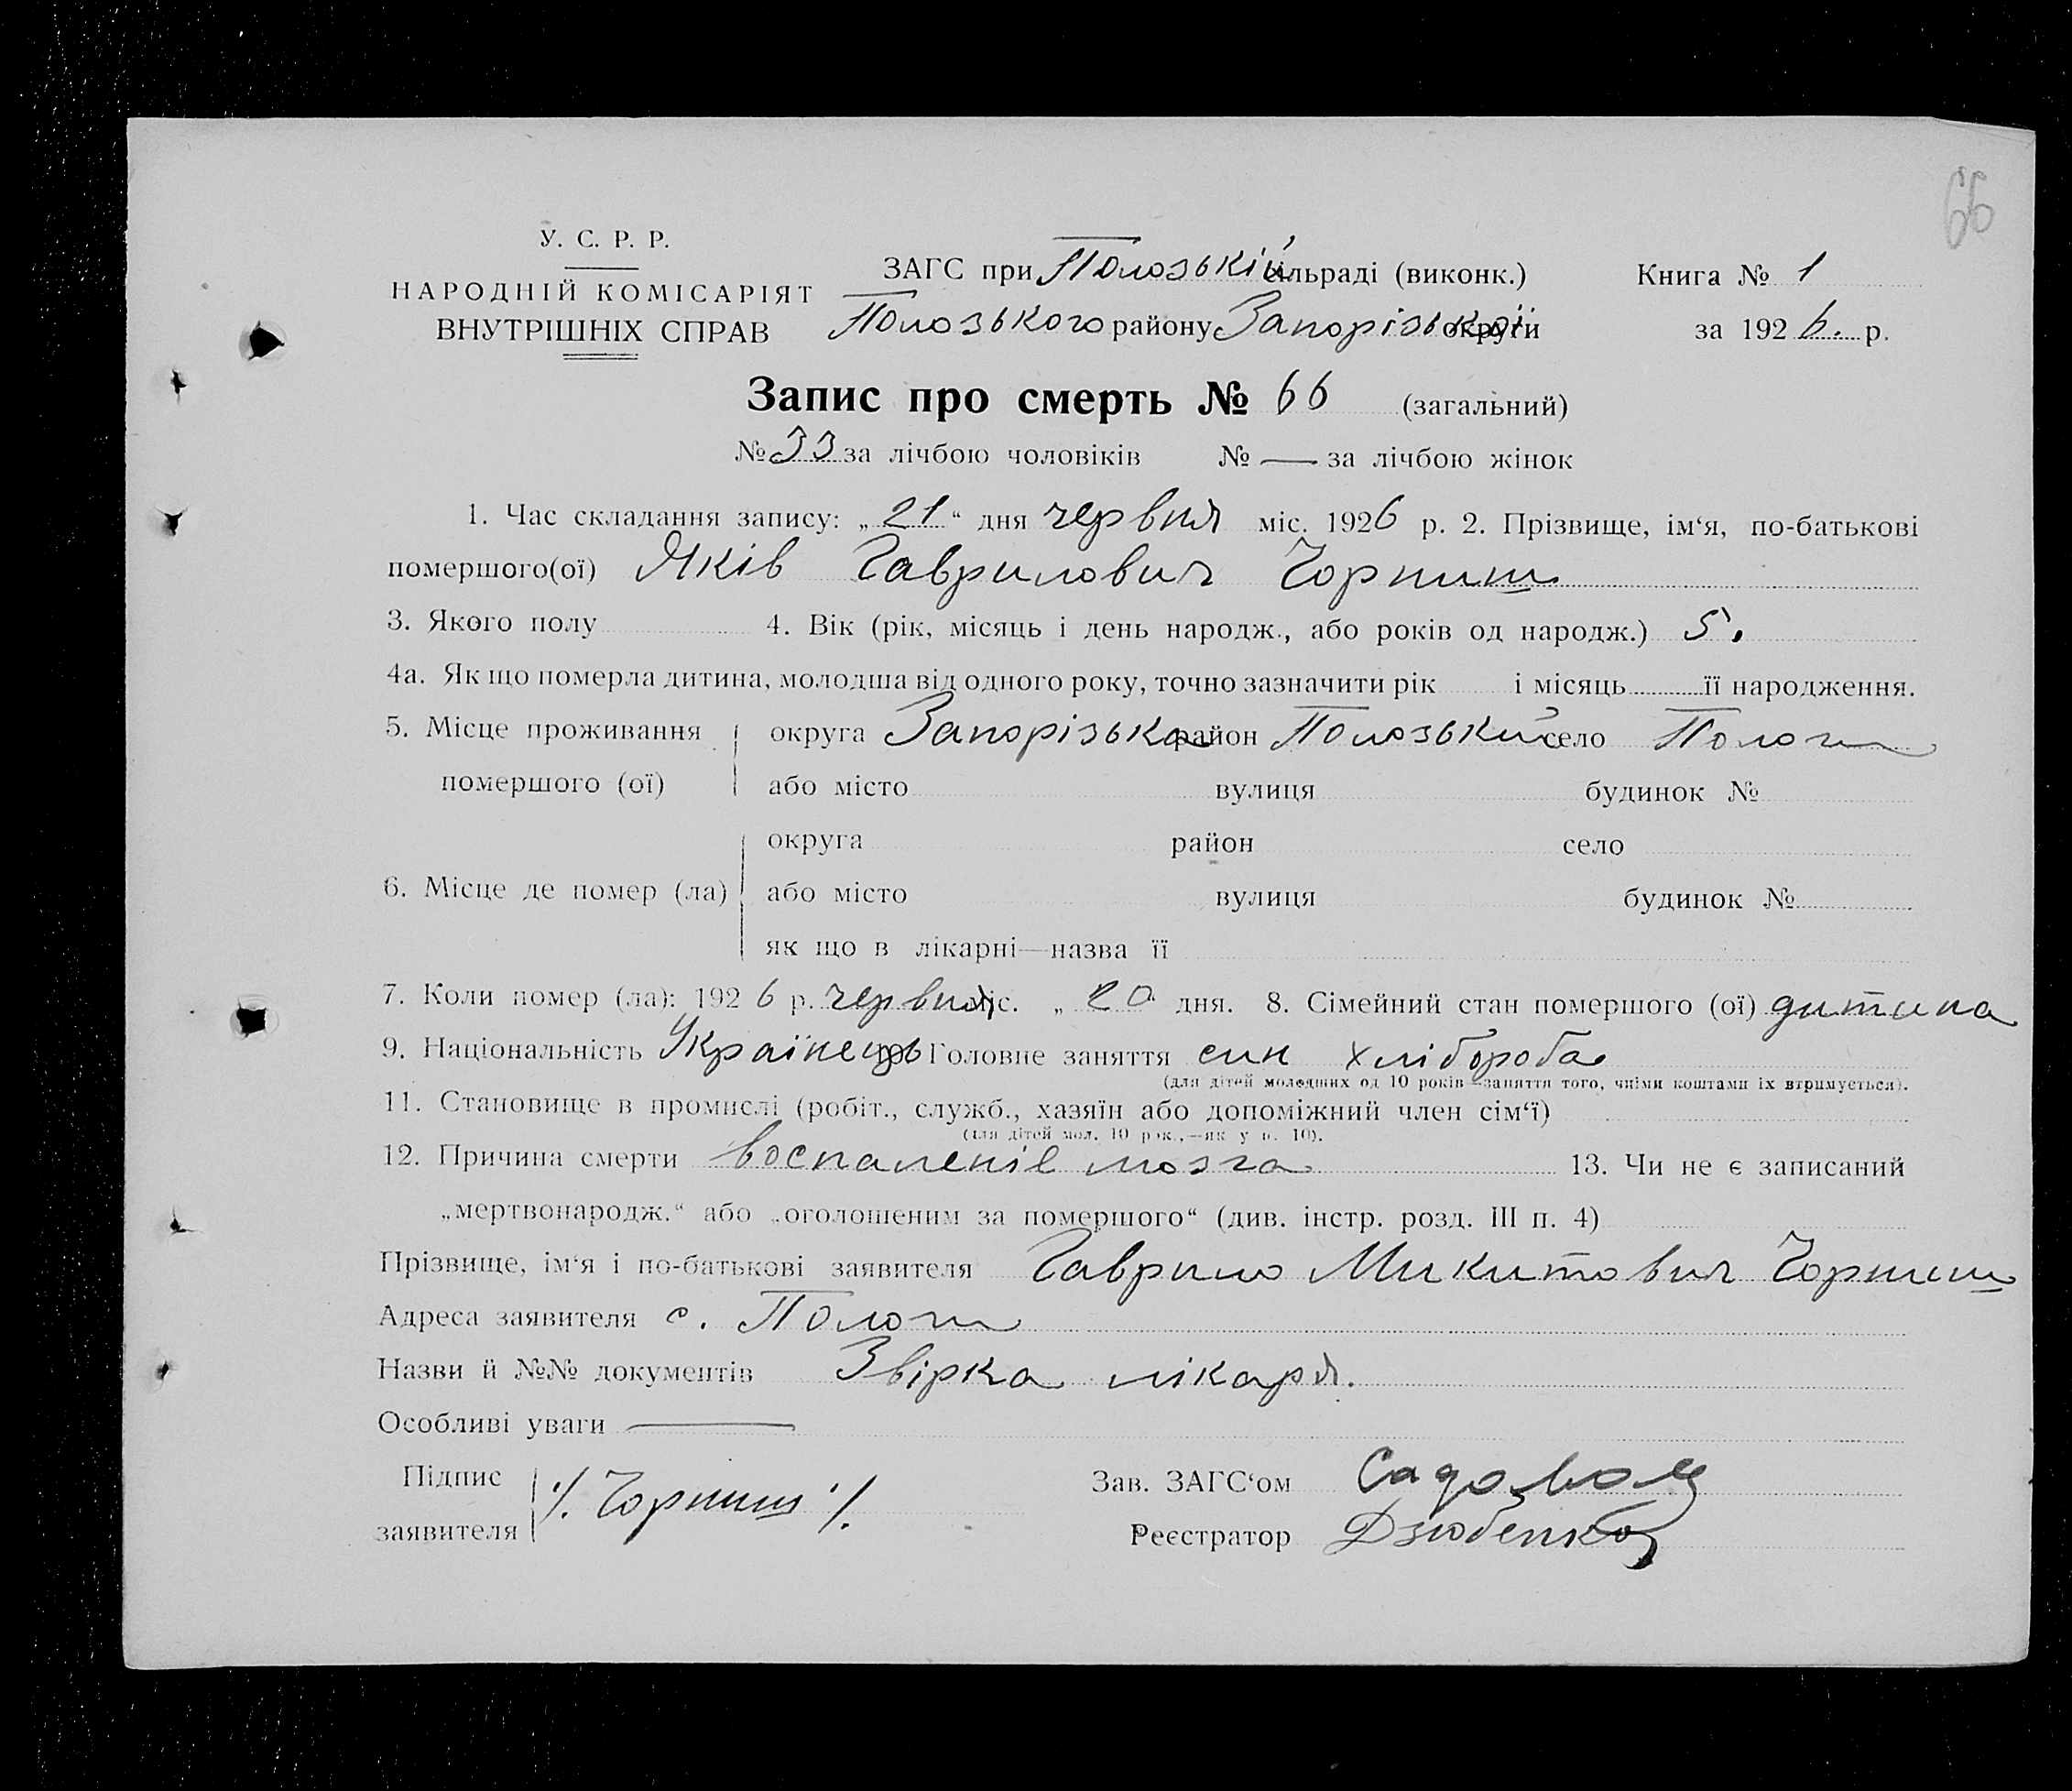 66
У. С. Р. Р.
НАРОДНІЙ КОМІСАРІЯТ
ВНУТРІШНІХ СПРАВ
ЗАГС при Полозькій сільраді (виконк.)
Полозького району Запорізької округи
Книга № 1
за 1926. р.
Запис про смерть № 66 (загальний)
№ 33 за лічбою чоловіків № — за лічбою жінок
1. Час складання запису: „21“ дня червня міс. 1926 р. 2. Прізвище, ім‘я, по-батькові
помершого(ої) Яків Гаврилович Чорниш
3. Якого полу 4. Вік (рік, місяць і день народж., або років од народж.) 5.
4а. Як що померла дитина, молодша від одного року, точно зазначити рік і місяць її народження.
5. Місце проживання округа Запорізька район Полозький село Пологи
помершого (ої) або місто вулиця будинок №
округа район село
6. Місце де помер (ла) або місто вулиця будинок №
як що в лікарні—назва її
7. Коли помер (ла): 1926 р. червня міс. „20 дня. 8. Сімейний стан помершого (ої) дитина
9. Національність Українець 10. Головне заняття син хлібороба
(для дітей молодших од 10 років—заняття того, чиїми коштами їх втримується).
11. Становище в промислі (робіт., служб., хазяїн або допоміжний член сім‘ї)
(для дітей мол. 10 рок.,—як у п. 10).
12. Причина смерти воспаленіе мозга 13. Чи не є записаний
„мертвонародж.“ або „оголошеним за помершого“ (див. інстр. розд. III п. 4)
Прізвище, ім‘я і по-батькові заявителя Гаврило Микитович Чорниш
Адреса заявителя с. Пологи
Назви й №№ документів Звірка лікаря.
Особливі уваги —
Підпис
заявителя /. Чорниш /.
Зав. ЗАГС‘ом
Реєстратор Дзюбенко